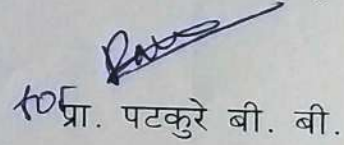 for प्रा. पटकुरे बी. बी.